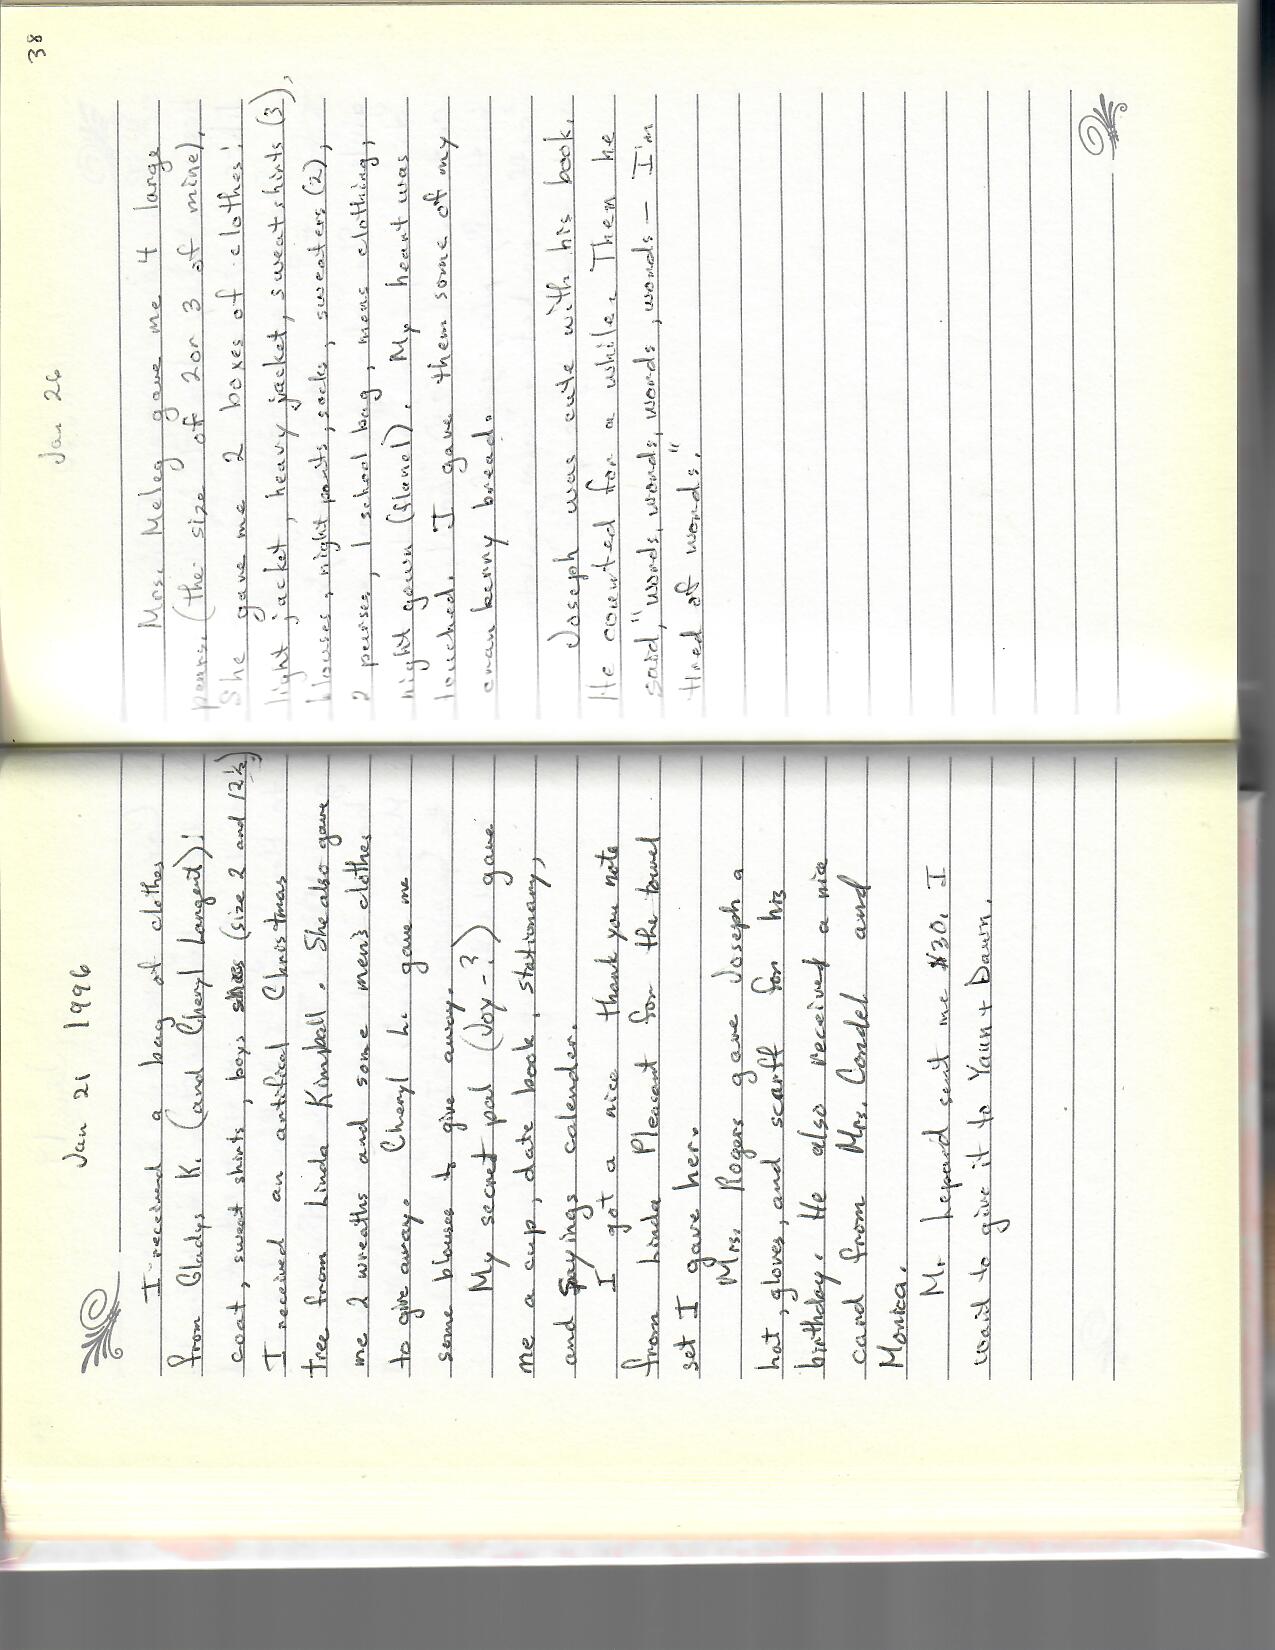 Jan 21 1996
I received a bag of clothes
from Gladys K. (and Cheryl Largent);
coat, sweat shirts, boys shoes (size 2 and 12½)
I received an artifical Christmas
tree from Linda Kimball. She also gave
me 2 wreaths and some men's clothes
to give away. Cheryl h. gave me
some blouses to give away.
My secret pal (Joy-?) gave
me a cup, date book, stationary,
and sayings calender.
I got a nice thank you note
from Linda Pleasant for the towel
set I gave her.
Mrs. Rogers gave Joseph a
hat, gloves, and scarff for his
birthday. He also received a nice
card from Mrs. Condel and
Monica.
Mr. Lepard sent me $30. I
want to give it to Yaun + Dawn.
38
Jan 26
Mrs. Meleg gave me 4 large
pears. (the size of 2 or 3 of mine).
She gave me 2 boxes of clothes:
light jacket, heavy jacket, sweatshirts (3),
blouses, night pants, socks, sweaters (2),
2 purses, 1 school bag, mens clothing,
night gown (flanel). My heart was
touched. I gave them some of my
cranberry bread.
Joseph was cute with his book.
He counted for a while. Then he
said, "words, words, words, words, words — I'm
tired of words."